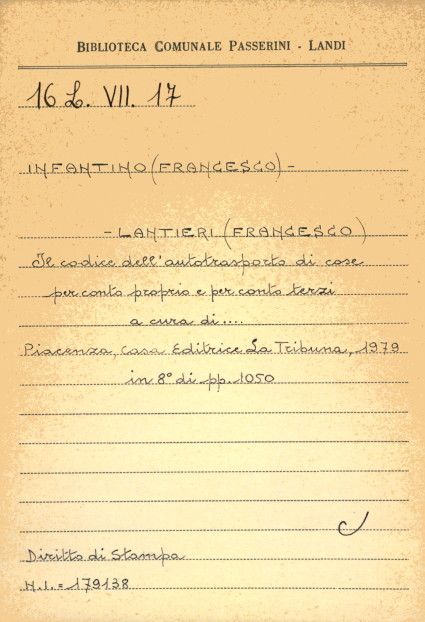 BIBLIOTECA COMUNALE PASSERINI - LANDI
16 L. VII. 17
INFANTINO (FRANCESCO) -
- LANTIERI (FRANCESCO)
Il codice dell'autotrasporto di cose
per conto proprio e per conto terzi
a cura di....
Piacenza, Casa Editrice La Tribuna, 1979
in 8° di pp. 1050
Diritto di Stampa
N.I. = 179138